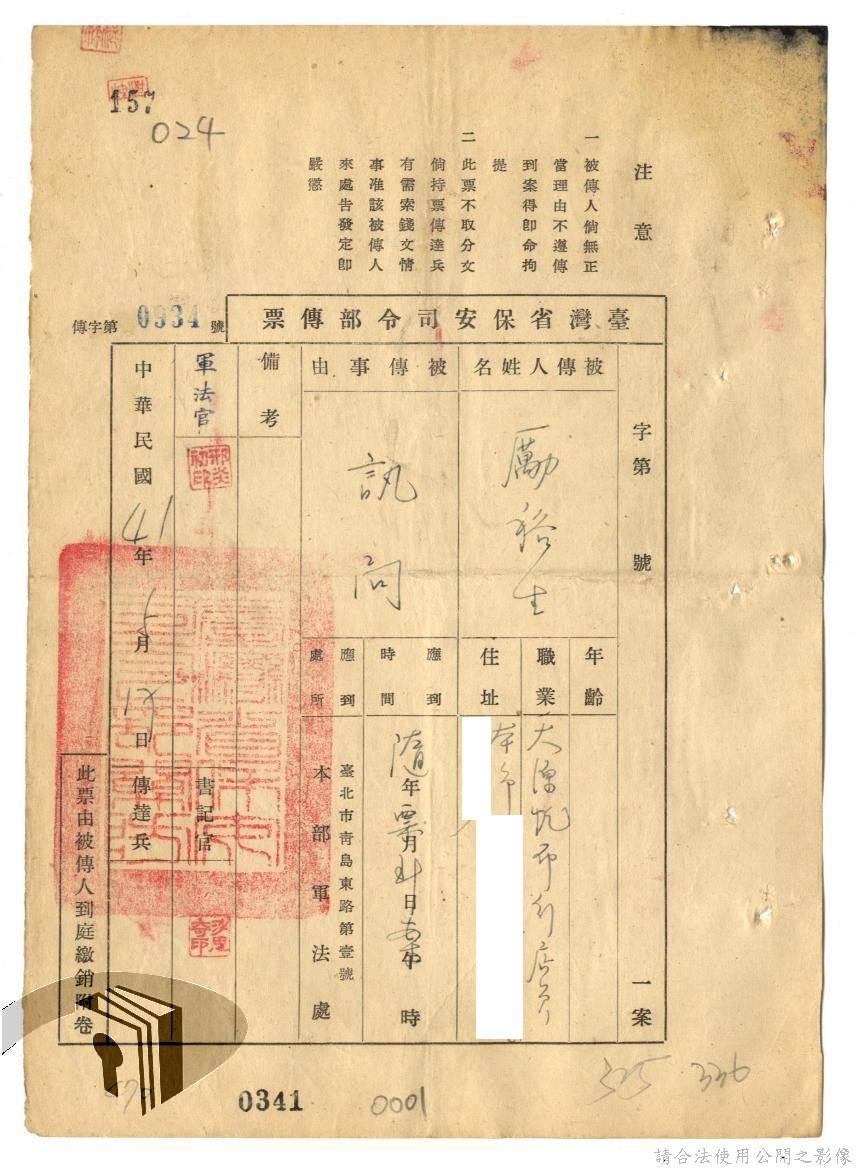 157
024
注意
一 被傳人倘無正
當理由不遵傳
到案得即命拘
提
二 此票不取分文
倘持票傳達兵
有需索錢文情
事准該被傳人
來處告發定即
嚴懲
臺灣省保安司令部傳票
傳字第0934號
字第 號 一案
被傳人姓名
勵裕生
年齡
職業
布行店員
住址
本市
被傳事由
訊問
應到時間
隨年票月到日案 時
應到處所
臺北市青島東路第壹號
本部軍法處
備考
軍法官
書記官
中華民國41年 月 日
傳達兵
此票由被傳人到庭繳銷附卷
325 336
0341
0001
請合法使用公開之影像